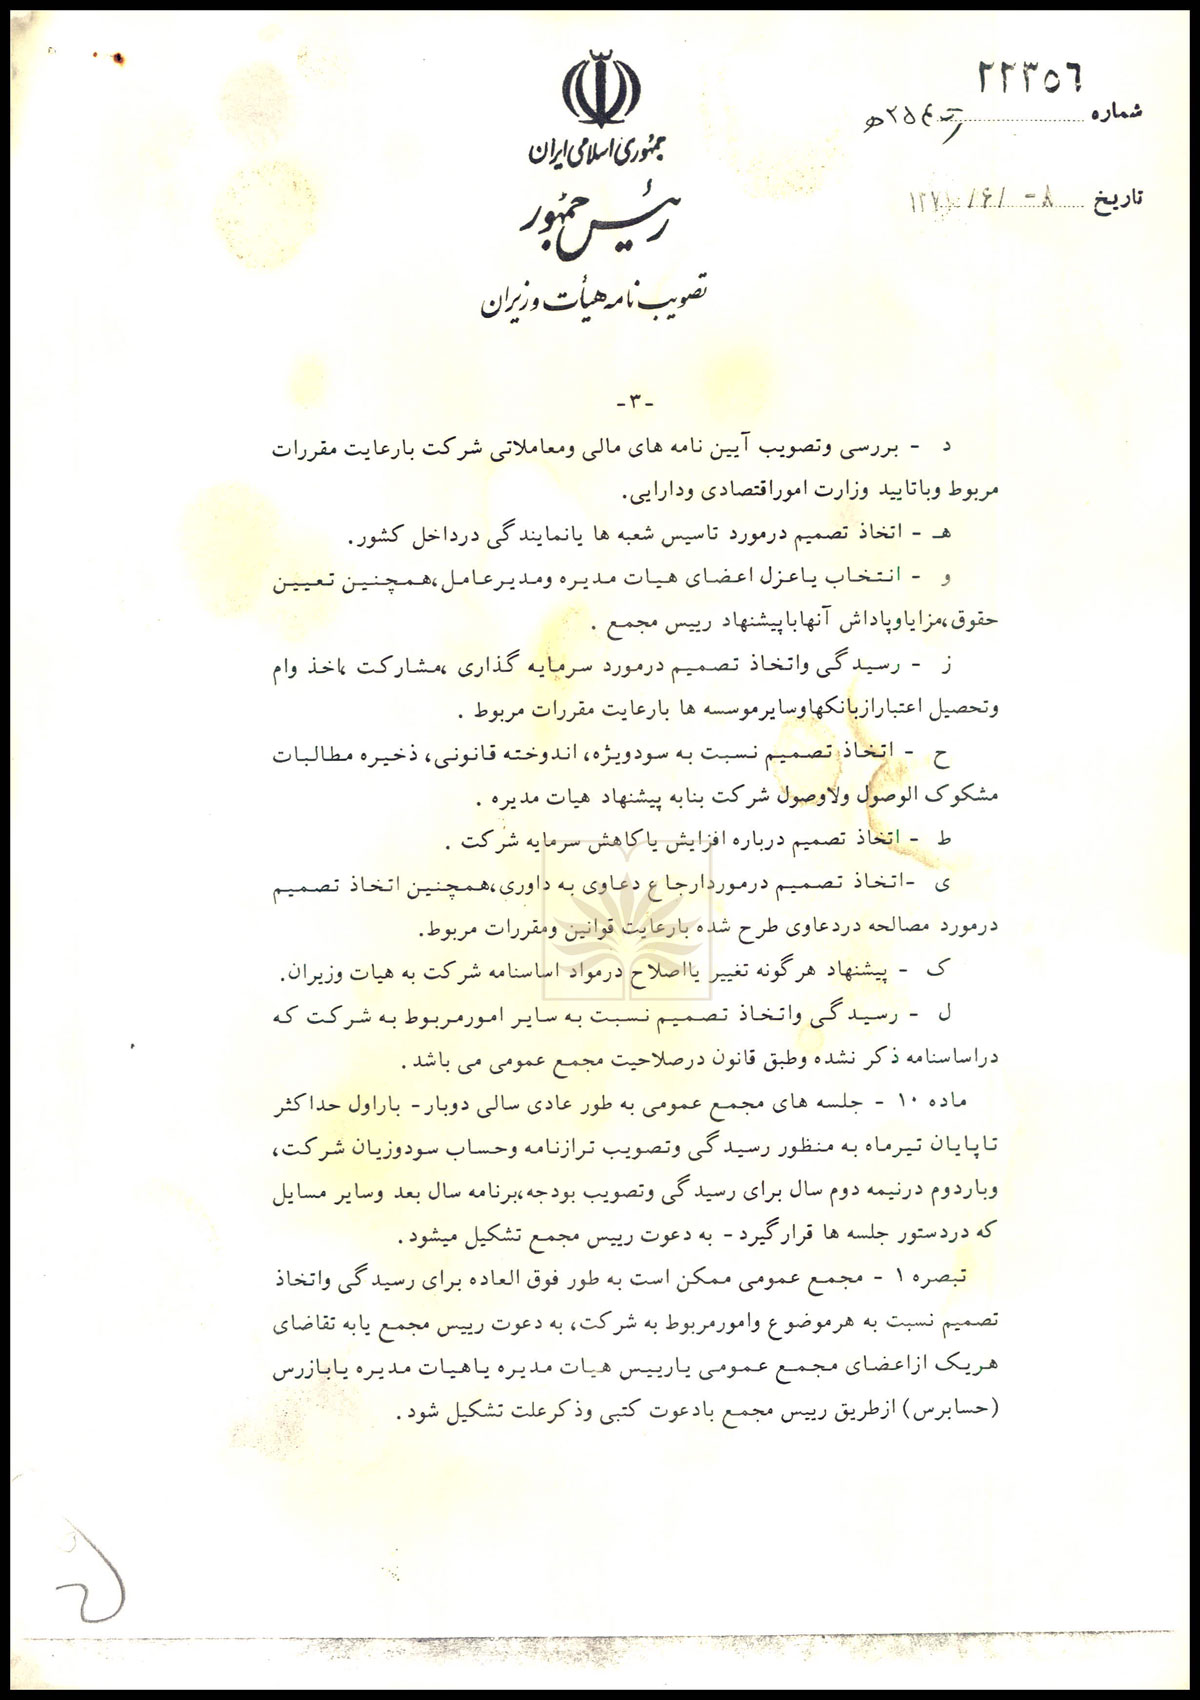 ۲۲۳۵۶
شماره
جمهوری اسلامی ایران
تاریخ ۸-/۶/۱۳۷۱
رئیس جمهور
تصویب نامه هیأت وزیران
-۳-
د - بررسی وتصویب آیین نامه های مالی ومعاملاتی شرکت بارعایت مقررات
مربوط وباتایید وزارت اموراقتصادی ودارایی.
هـ - اتخاذ تصمیم درمورد تاسیس شعبه ها یانمایندگی درداخل کشور.
و - انتخاب یاعزل اعضای هیات مدیره ومدیرعامل،همچنین تعیین
حقوق،مزایاوپاداش آنهاباپیشنهاد رییس مجمع .
ز - رسیدگی واتخاذ تصمیم درمورد سرمایه گذاری ،مشارکت ،اخذ وام
وتحصیل اعتبارازبانکهاوسایرموسسه ها بارعایت مقررات مربوط .
ح - اتخاذ تصمیم نسبت به سودویژه، اندوخته قانونی، ذخیره مطالبات
مشکوک الوصول ولاوصول شرکت بنابه پیشنهاد هیات مدیره .
ط - اتخاذ تصمیم درباره افزایش یاکاهش سرمایه شرکت .
ی -اتخاذ تصمیم درموردارجاع دعاوی به داوری،همچنین اتخاذ تصمیم
درمورد مصالحه دردعاوی طرح شده بارعایت قوانین ومقررات مربوط.
ک - پیشنهاد هرگونه تغییر یااصلاح درمواد اساسنامه شرکت به هیات وزیران.
ل - رسیدگی واتخاذ تصمیم نسبت به سایر امورمربوط به شرکت که
دراساسنامه ذکر نشده وطبق قانون درصلاحیت مجمع عمومی می باشد .
ماده ۱۰ - جلسه های مجمع عمومی به طور عادی سالی دوبار- باراول حداکثر
تاپایان تیرماه به منظور رسیدگی وتصویب ترازنامه وحساب سودوزیان شرکت،
وباردوم درنیمه دوم سال برای رسیدگی وتصویب بودجه،برنامه سال بعد وسایر مسایل
که دردستور جلسه ها قرارگیرد - به دعوت رییس مجمع تشکیل میشود .
تبصره ۱ - مجمع عمومی ممکن است به طور فوق العاده برای رسیدگی واتخاذ
تصمیم نسبت به هرموضوع وامورمربوط به شرکت، به دعوت رییس مجمع یابه تقاضای
هریک ازاعضای مجمع عمومی یارییس هیات مدیره یاهیات مدیره یابازرس
(حسابرس) ازطریق رییس مجمع بادعوت کتبی وذکرعلت تشکیل شود .